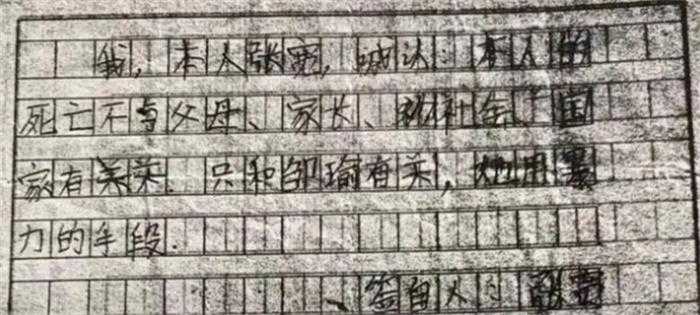 我,本人张宽,诚认:本人的
死亡不与父母、家长、社会、国
家有关.只和邹瑜有关,她用暴
力的手段.
签自人:张宽